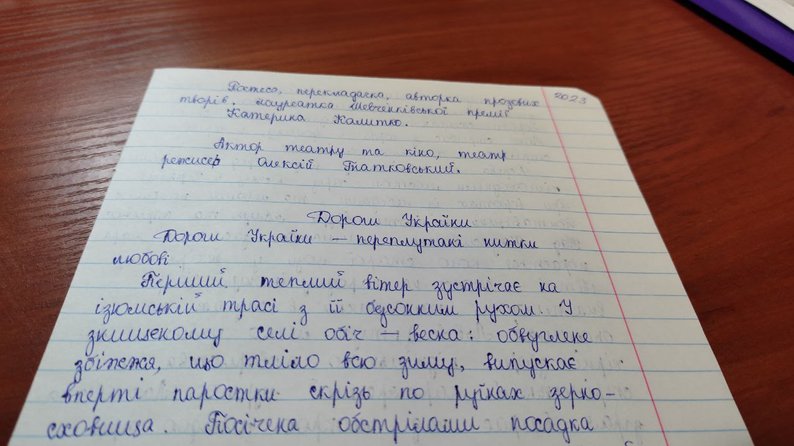 Поетеса, перекладачка, авторка прозових 2023
творів, лауреатка Шевченківської премії
Катерина Калитко.
Актор театру та кіно, театр
режисер Олексій Гнатковський.
Дороги України
Дороги України — переплутані нитки
любові
Перший теплий вітер зустрічає на
ізюмській трасі з її безсонним рухом. У
знищеному селі обіч — весна: обвуглене
збіжжя, що тліло всю зиму, випускає
вперті паростки скрізь по руїнах зерно-
сховища. Посічена обстрілами посадка